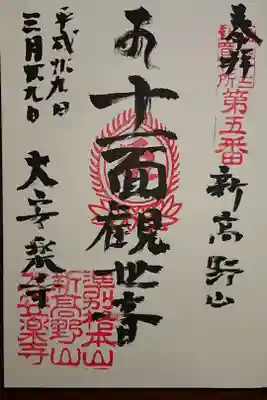 奉拝
新高野山
觀音札所
第五番
十一面觀世音
平成廿九年
三月廿九日
大安楽寺
準別格本山
新高野山
大安楽寺